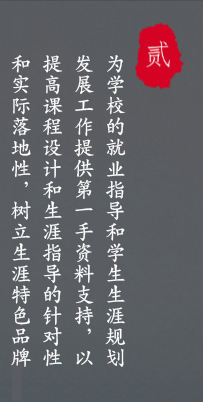 贰
为学校的就业指导和学生生涯规划
发展工作提供第一手资料支持，以
提高课程设计和生涯指导的针对性
和实际落地性，树立生涯特色品牌